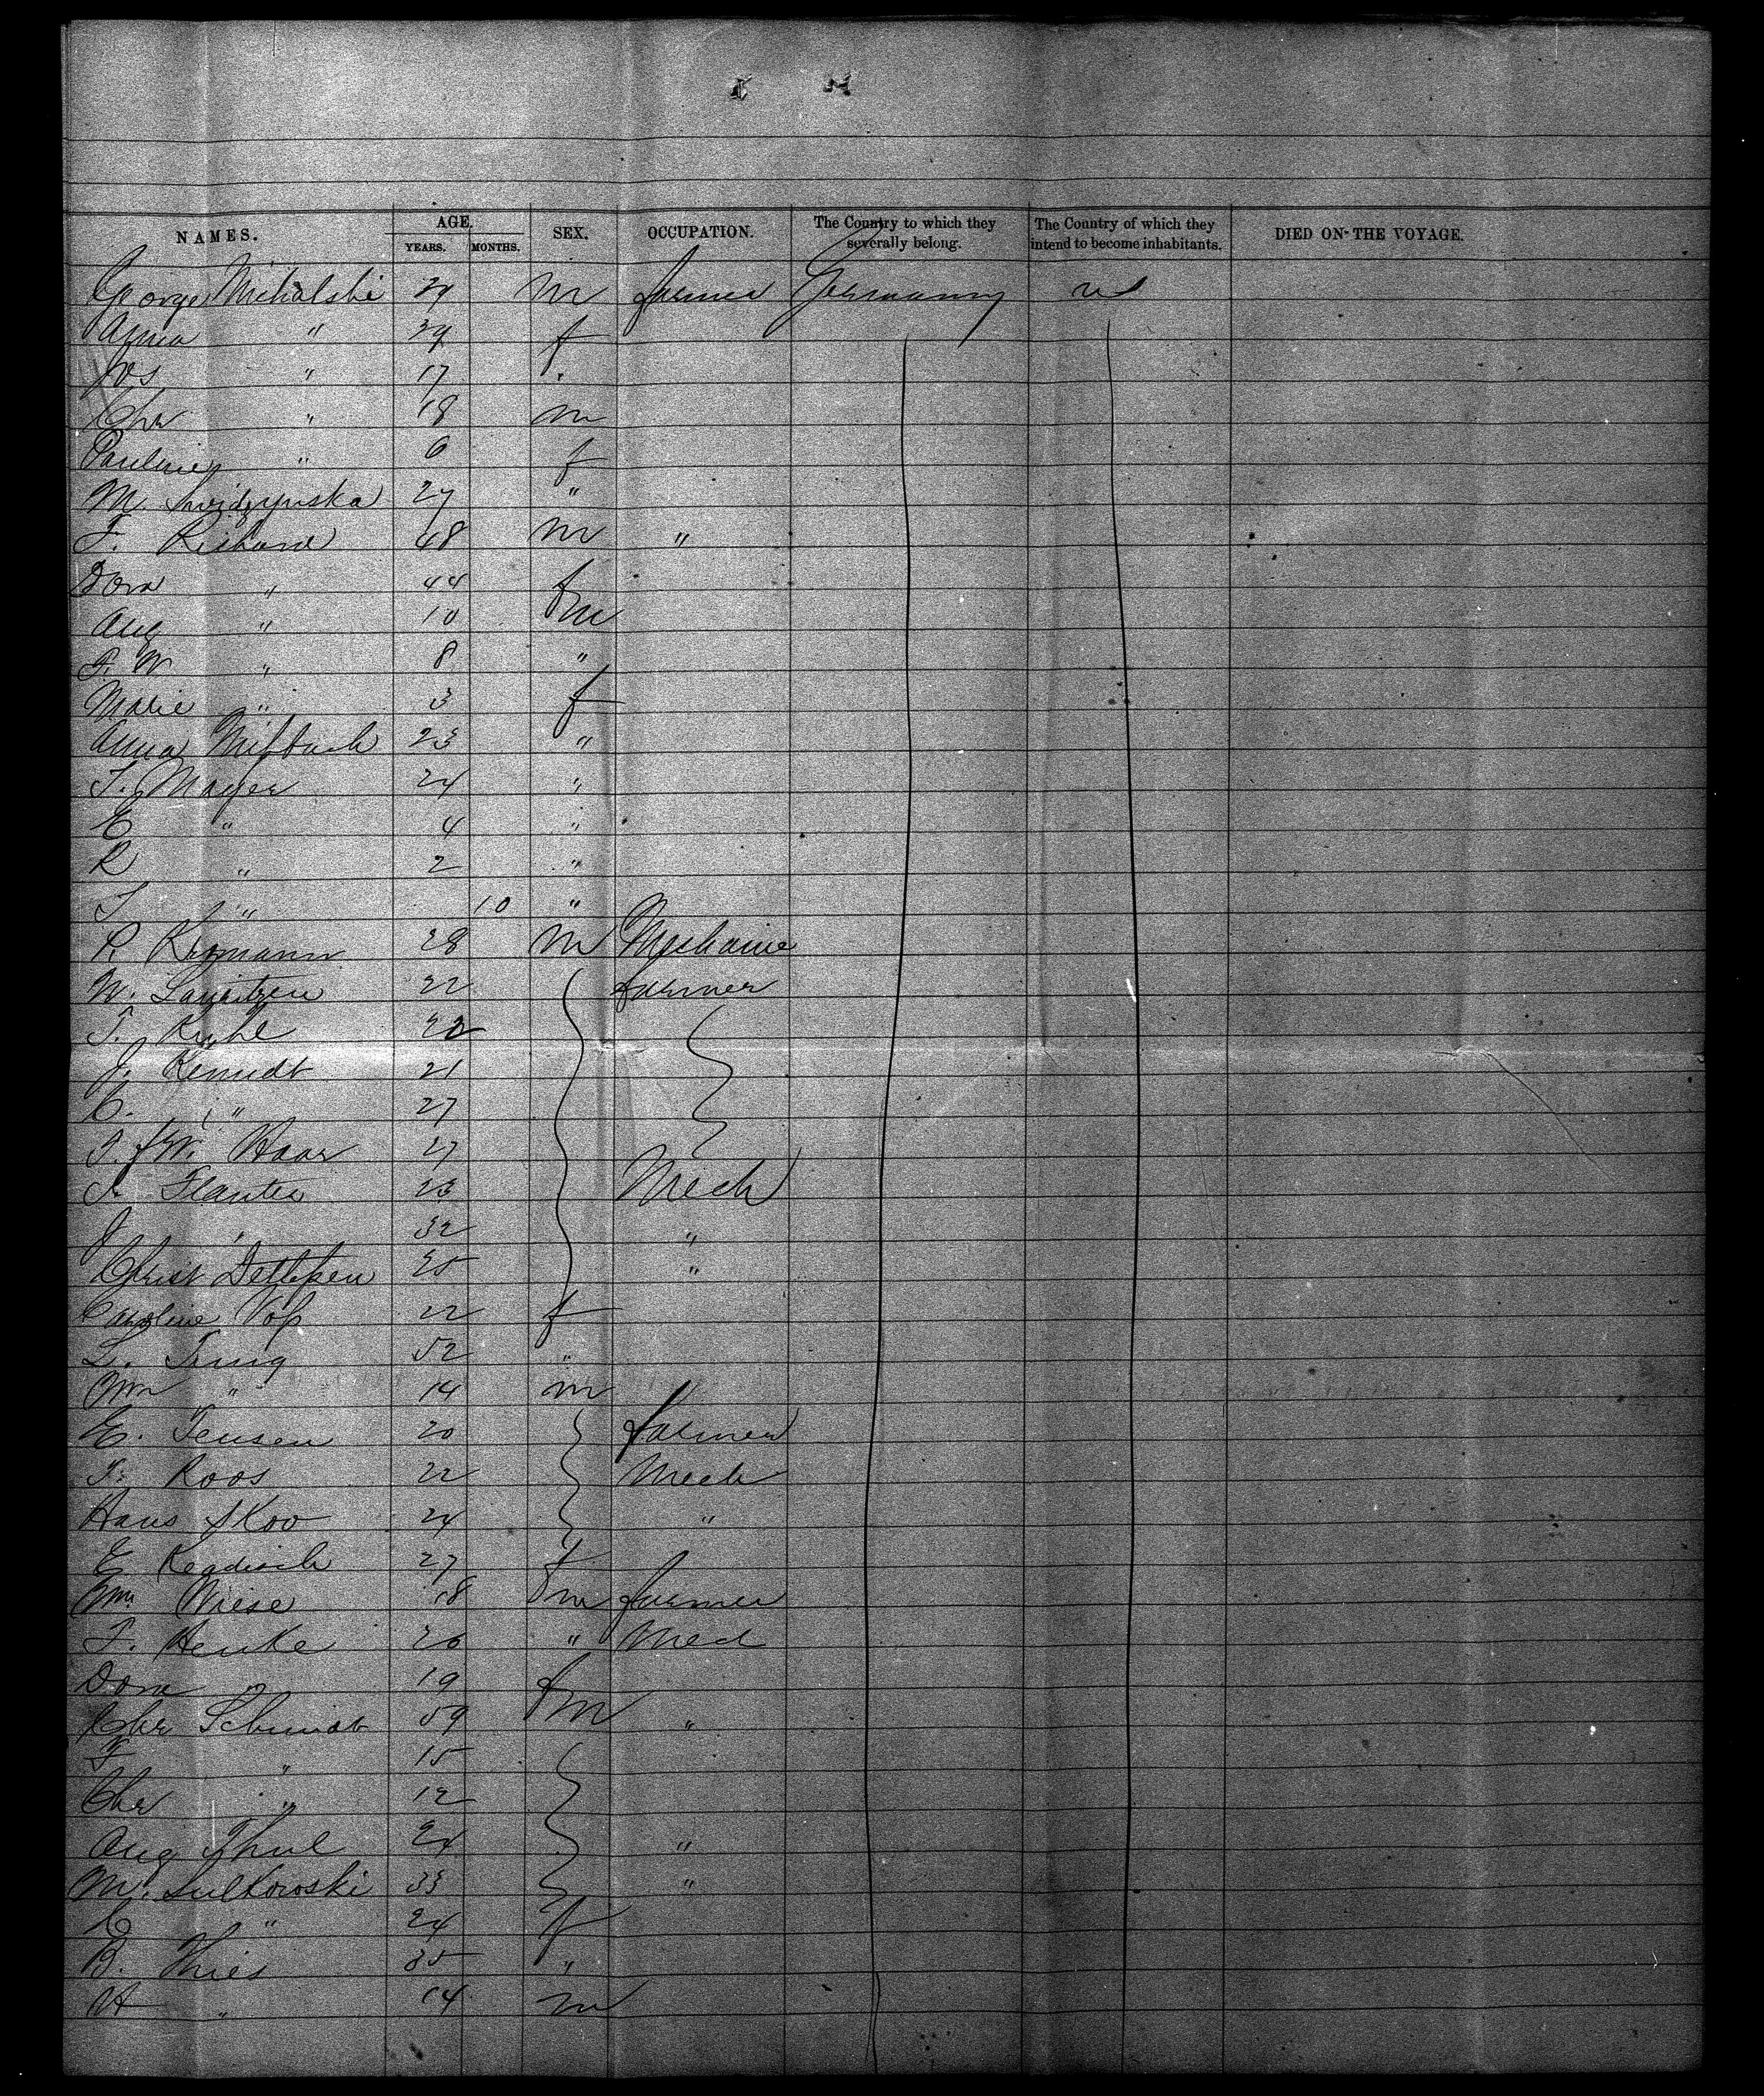 NAMES. AGE. YEARS. MONTHS. SEX. OCCUPATION. The Country to which they severally belong. The Country of which they intend to become inhabitants. DIED ON THE VOYAGE.
George Michalski 29 m farmer Germany
Anna " 39 f
Jos " 17 "
Chr " 18 m
Pauline " 6 f
M. 27 "
F. Richard 48 m "
Dora " 44 f
Aug " 10 m
F. W " 8 "
Marie " 3 f
Anna 23 "
T. Mayer 24 "
E " 4 "
R " 2 "
T " 10 "
P. 28 m Mechanic
W. Lauritzen 22 farmer
T. 22
J. 21
C. " 27
Haar 27
23 Mech
J " 32 "
Christ Detlefsen 25 "
Caroline Voß 22 f
L. 52 "
Wm " 14 m
E. Jensen 20 farmer
Roos 22 Mech
Hans Skov 24 "
E 27 f
Wm Wiese 18 m farmer
F. Henke 26 " Mech
Dora " 19 f
Chr Schmidt 59 m "
F " 15
Chr " 12
Aug Thul 24 "
M. Sulkowski 33 "
C " 24 f
B. Thies 35 "
H " 14 m